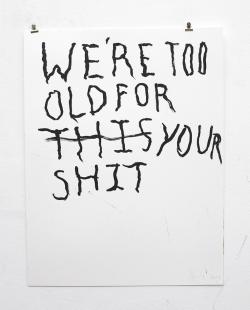 WE'RE TOO
OLD FOR
THIS YOUR
SHIT